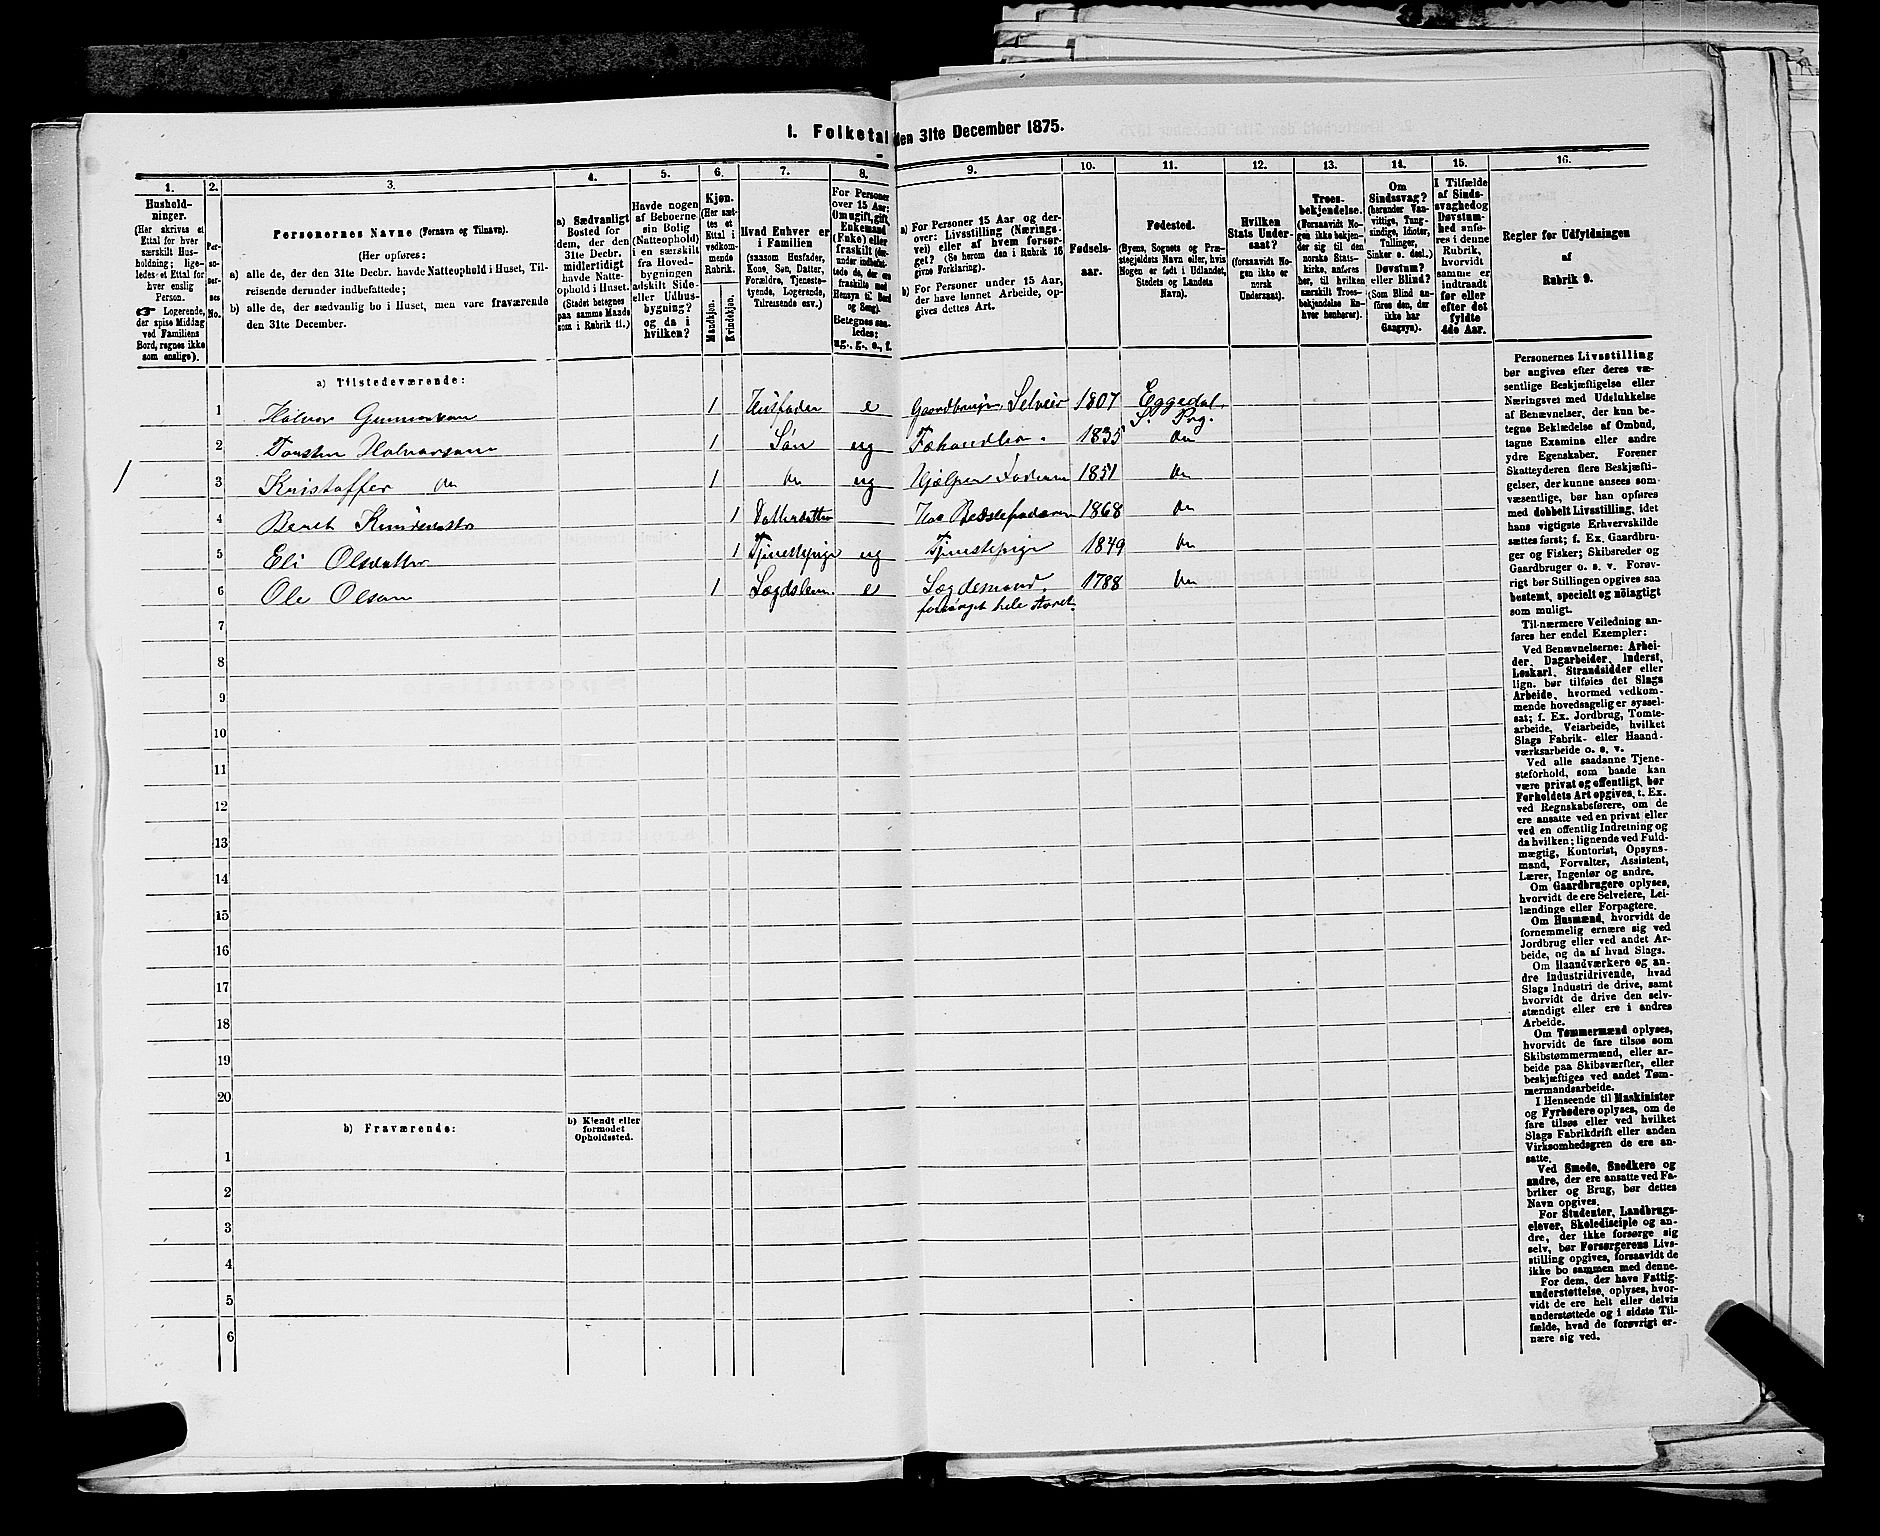 I. Folketal den 31te December 1875.
1.
2.
3.
4.
5.
6.
7.
8.
9.
10.
11.
12.
13.
14.
15.
16.
Hushold-
ninger.
(Her skrives et
Ettal for hver
særskilt Hus-
holdning; lige-
ledes et Ettal for
hver enslig
Person.
☞ Logerende,
der spise Middag
ved Familiens
Bord, regnes ikke
som enslige).
Per-
so-
ner-
nes
No.
Personernes Navne (Fornavn og Tilnavn).
(Her opføres:
a) alle de, der den 31te Decbr. havde Natteophold i Huset, Til-
reisende derunder indbefattede;
b) alle de, der sædvanlig bo i Huset, men vare fraværende
den 31te December.
a) Sædvanligt
Bosted for
dem, der den
31te Decbr.
midlertidigt
havde Natte-
ophold i Huset.
(Stedet betegnes
paa samme Maade
som i Rubrik 11.)
Havde nogen
af Beboerne
sin Bolig
(Natteophold)
i en særskilt
fra Hoved-
bygningen
adskilt Side-
eller Udhus-
bygning?
og da i
hvilken?
Kjøn.
(Her sæt-
tes et
Ettal i
vedkom-
mende
Rubrik.
Mandkjøn.
Kvindekjøn.
Hvad Enhver er
i Familien
(saasom Husfader,
Kone, Søn, Datter,
Forældre, Tjeneste-
tyende, Logerende,
Tilreisende osv.)
For Personer
over 15 Aar:
Om ugift, gift,
Enkemand
(Enke) eller
fraskilt (der-
under indbefat-
tede de, der ere
fraskilte med
Hensyn til Bord
og Seng).
Betegnes saa-
ledes:
ug., g., e., f.
a) For Personer 15 Aar og der-
over: Livsstilling (Nærings-
vei) eller af hvem forsør-
get? (Se herom den i Rubrik 16
givne Forklaring).
b) For Personer under 15 Aar,
der have lønnet Arbeide, op-
gives dettes Art.
Fødsels-
aar.
Fødested.
(Byens, Sognets og Præ-
stegjeldets Navn eller, hvis
Nogen er født i Udlandet,
Stedets og Landets
Navn).
Hvilken
Stats Under-
saat?
(forsaavidt No-
gen ikke er
norsk
Undersaat).
Troes-
bekjendelse.
(Forsaavidt No-
gen ikke bekjen-
der sig til den
norske Stats-
kirke, anføres
her, til hvilken
særskilt Troes-
bekjendelse En-
hver henhører).
Om
Sindssvag?
(herunder Van-
vittige, Tung-
sindige, Idioter,
Tullinger,
Sinker o. desl.)
Døvstum?
eller Blind?
(Som Blind an-
føres den, der
ikke har
Gangsyn).
I Tilfælde
af Sinds-
svaghed og
Døvstum-
hed anfø-
res i denne
Rubrik,
hvorvidt
samme er
indtraadt
før eller
efter det
fyldte
4de Aar.
Regler for Udfyldningen
af
Rubrik 9.
a) Tilstedeværende:
1 Halvor Gunnersen 1 Husfader e Gaardbruger, Selveier 1807 Eggedal. S. Prg.
2 Torsten Halvorsen 1 Søn ug Fæhandler. 1835 do
1 3 Kristoffer do 1 do ug Hjælper Faderen 1851 do
4 Beret 1 Datterdatter Hos Bedstefaderen 1868 do
5 Eli Olsdatter 1 Tjenestepige ug Tjenestepige 1849 do
6 Ole Olsen 1 Lægdslem. e Lægdsmand. 1788 do
forsørget hele Aaret.
7
8
9
10
11
12
13
14
15
16
17
18
19
20
b) Fraværende:
b) Kjendt eller
formodet
Opholdssted.
1
2
3
4
5
6
Personernes Livsstilling
bør angives efter deres væ-
sentlige Beskjæftigelse eller
Næringsvei med Udelukkelse
af Benævnelser, der kun be-
tegne Beklædelse af Ombud,
tagne Examina eller andre
ydre Egenskaber. Forener
Skatteyderen flere Beskjæfti-
gelser, der kunne ansees som
væsentlige, bør han opføres
med dobbelt Livsstilling, idet
hans vigtigste Erhvervskilde
sættes først; f. Ex. Gaardbru-
ger og Fisker; Skibsreder og
Gaardbruger o. s. v. Forøv-
rigt bør Stillingen opgives saa
bestemt, specielt og nöiagtigt
som muligt.
Til nærmere Veiledning an-
føres her endel Exempler:
Ved Benævnelserne: Arbei-
der, Dagarbeider, Inderst,
Løskarl, Strandsidder eller
lign. bør tilføies det Slags
Arbeide, hvormed vedkom-
mende hovedsagelig er syssel-
sat; f. Ex. Jordbrug, Tomte-
arbeide, Veiarbeide, hvilket
Slags Fabrik- eller Haand-
værksarbeide o. s. v.
Ved alle saadanne Tjene-
steforhold, som baade kan
være privat og offentligt, bør
Forholdets Art opgives, t. Ex.
ved Regnskabsførere, om de
ere ansatte ved en privat eller
ved en offentlig Indretning og
da hvilken; lignende ved Fuld-
mægtig, Kontorist, Opsyns-
mand, Forvalter, Assistent,
Lærer, Ingeniør og andre.
Om Gaardbrugere oplyses,
hvorvidt de ere Selveiere, Lei-
lændinge eller Forpagtere.
Om Husmænd, hvorvidt de
fornemmelig ernære sig ved
Jordbrug eller ved andet Ar-
beide, og da af hvad Slags.
Om Haandværkere og an-
dre Industridrivende, hvad
Slags Industri de drive, samt
hvorvidt de drive den selv-
stændigt eller ere i andres
Arbeide.
Om Tømmermænd oplyses,
hvorvidt de fare tilsøs som
Skibstømmermænd, eller ar-
beide paa Skibsværfter, eller
beskjæftiges ved andet Tøm-
mermandsarbeide.
I Henseende til Maskinister
og Fyrbødere oplyses, om de
fare tilsøs eller ved hvilket
Slags Fabrikdrift eller anden
Virksomhedsgren de ere an-
satte.
Ved Smede, Snedkere og
andre, der ere ansatte ved Fa-
briker og Brug, bør dettes
Navn opgives.
For Studenter, Landbrugs-
elever, Skoledisciple og an-
dre, der ikke forsørge sig
selv, bør Forsørgerens Livs-
stilling opgives, forsaavidt de
ikke bo sammen med denne.
For dem, der have Fattig-
understøttelse, oplyses, hvor-
vidt de ere helt eller delvis
understøttede og i sidste Til-
fælde, hvad de forøvrigt er-
nære sig ved.